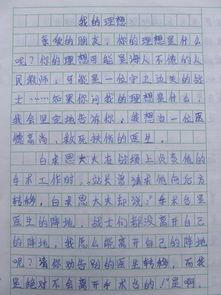 我的理想
亲爱的朋友，你的理想是什么
呢？你的理想可能是诲人不倦的人
民教师，可能是一位守卫边关的战
士……如果你问我的理想是什么，
我会坚定地告诉你，我想当一位医
德高尚、救死扶伤的医生。
白求恩大夫在前线上负责他的
手术工作时，站长曾请求他向后方
转移，白求恩大夫却说："手术台是
医生的阵地，战士们都没离开自己
的阵地，我怎么能离开自己的阵地
呢？请你劝告别的医生转移，而我
是绝对不会离开手术台的！"是啊，